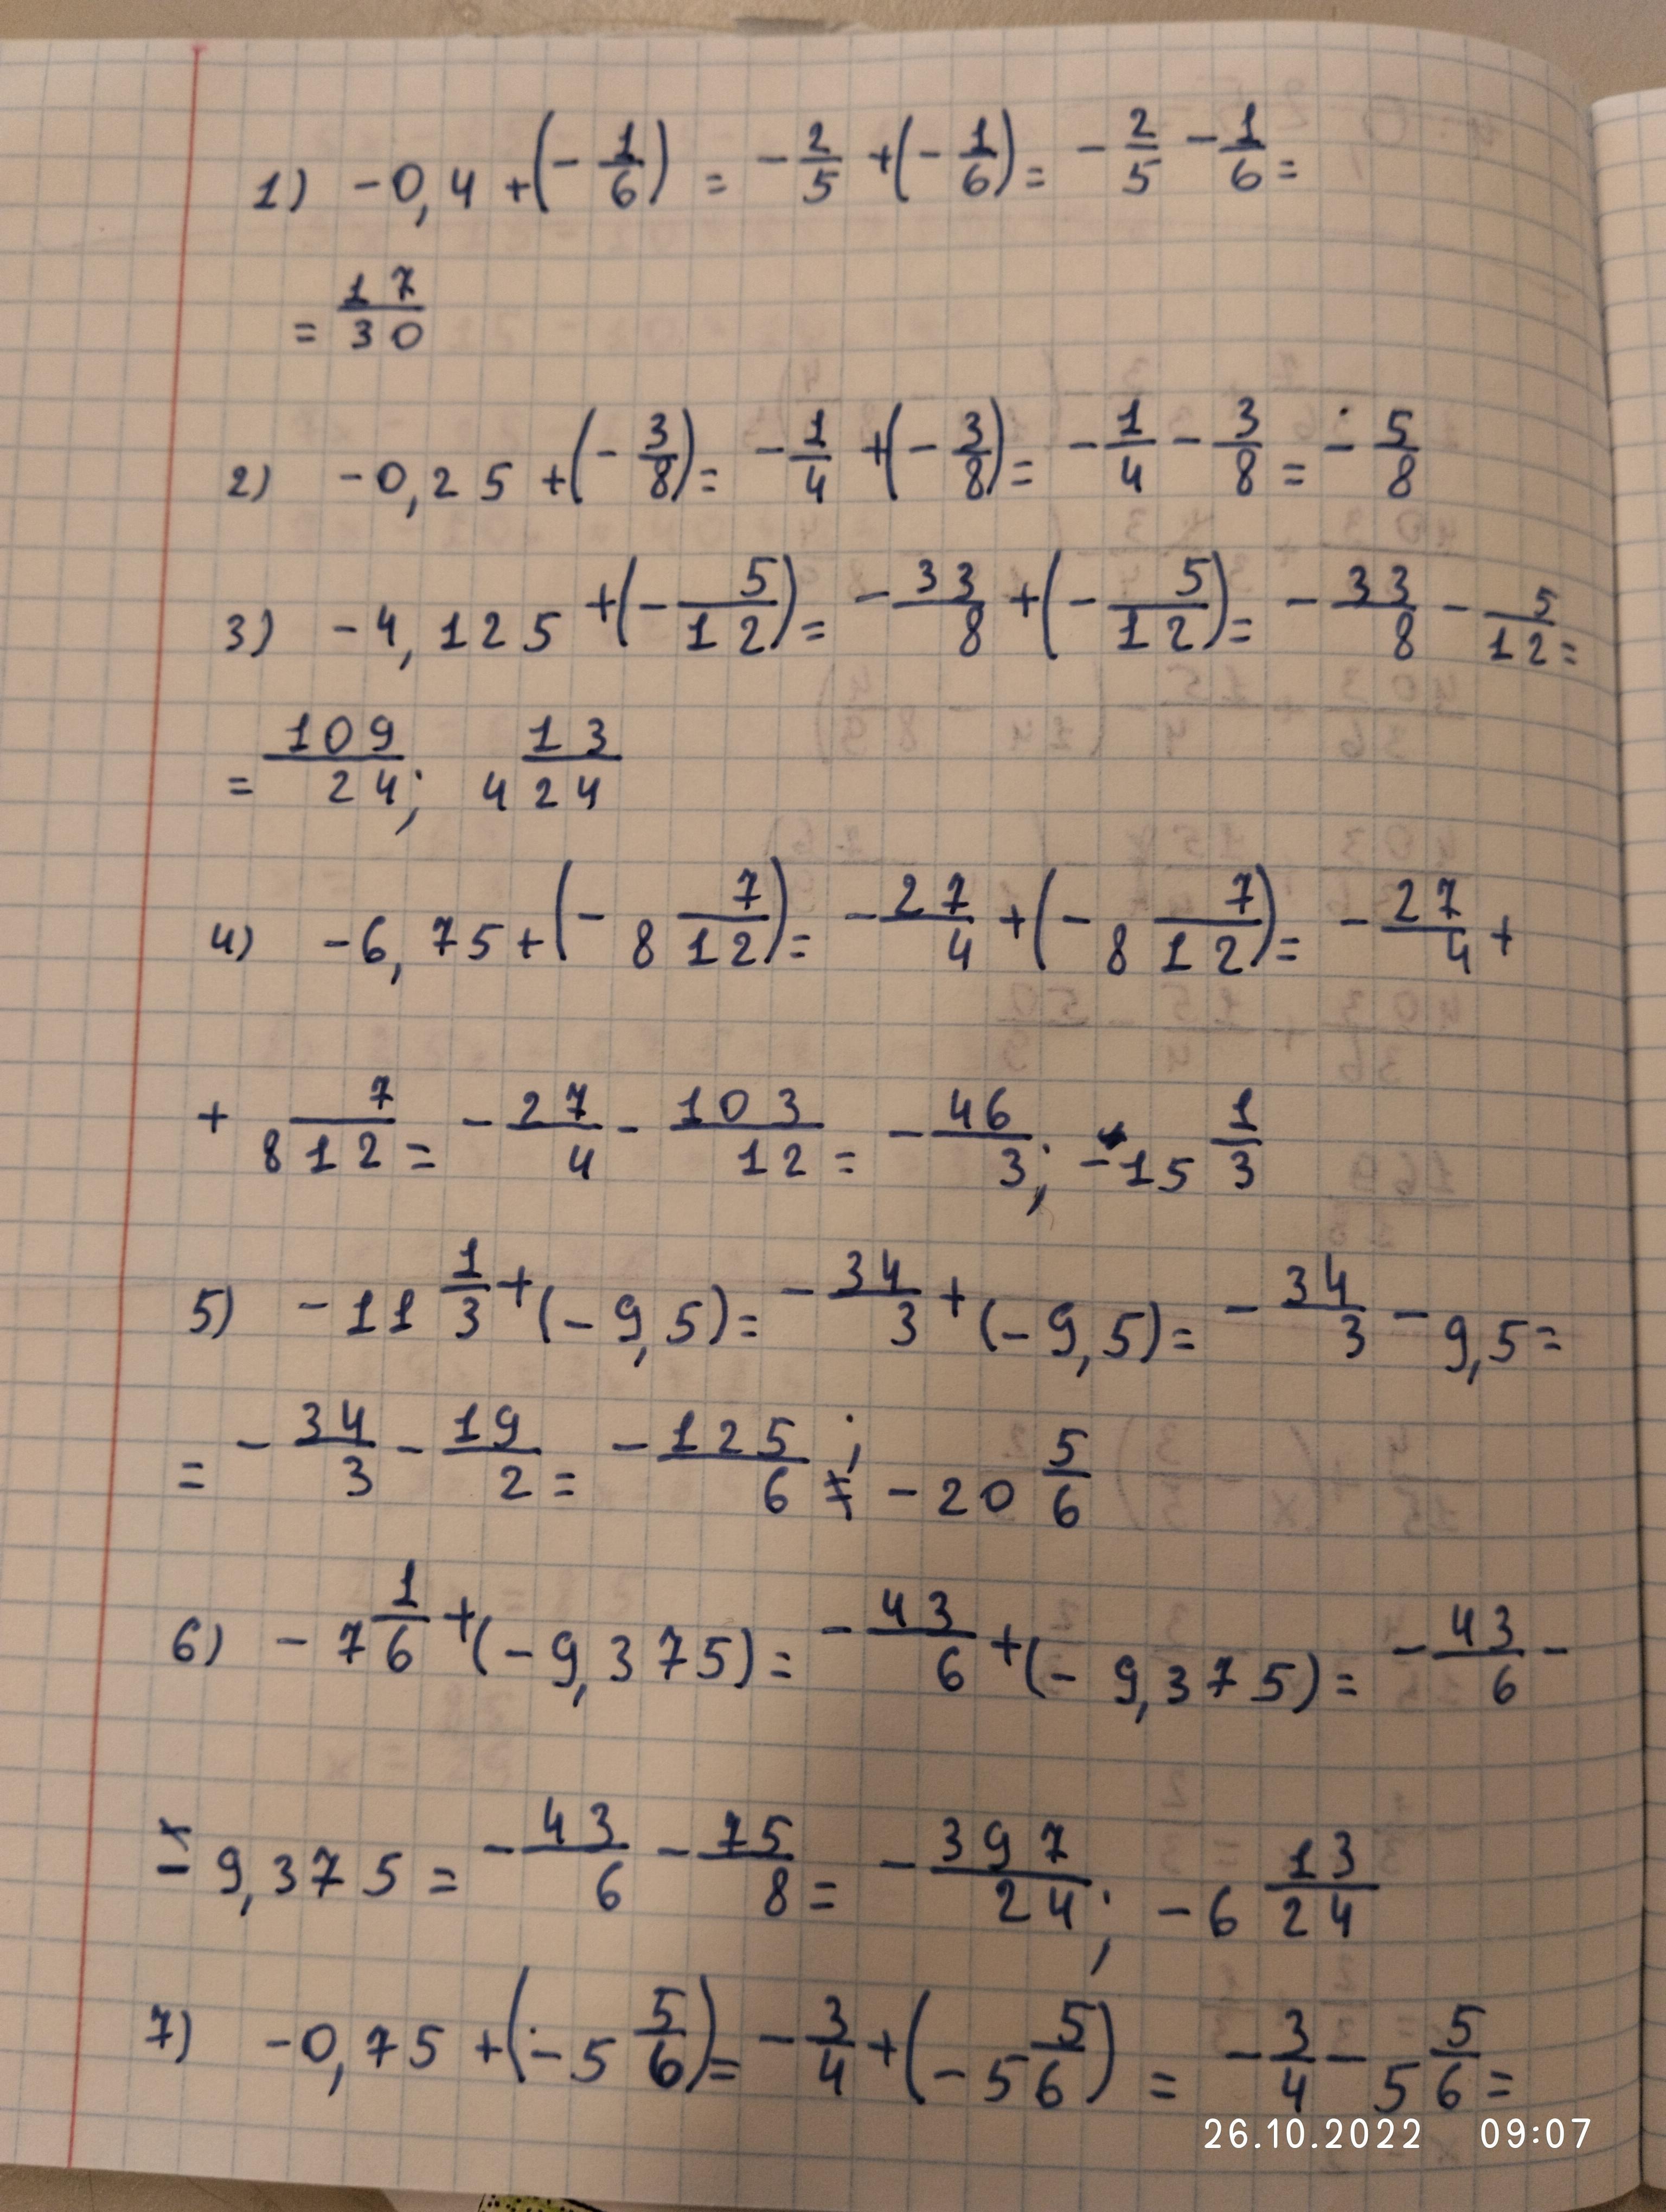 1) -0,4 + (- 1/6) = - 2/5 + (- 1/6) = - 2/5 - 1/6 =
= 17/30
2) -0,25 + (- 3/8) = - 1/4 + (- 3/8) = - 1/4 - 3/8 = - 5/8
3) -4,125 + (- 5/12) = - 33/8 + (- 5/12) = - 33/8 - 5/12 =
= 109/24; 4 13/24
4) -6,75 + (- 8 7/12) = - 27/4 + (- 8 7/12) = - 27/4 +
+ 8 7/12 = - 27/4 - 103/12 = - 46/3; -15 1/3
5) -11 1/3 + (-9,5) = - 34/3 + (-9,5) = - 34/3 - 9,5 =
= - 34/3 - 19/2 = - 125/6; -20 5/6
6) -7 1/6 + (-9,375) = - 43/6 + (-9,375) = - 43/6 -
- 9,375 = - 43/6 - 75/8 = - 397/24; -6 13/24
7) -0,75 + (-5 5/6) = - 3/4 + (-5 5/6) = - 3/4 - 5 5/6 =
26.10.2022 09:07